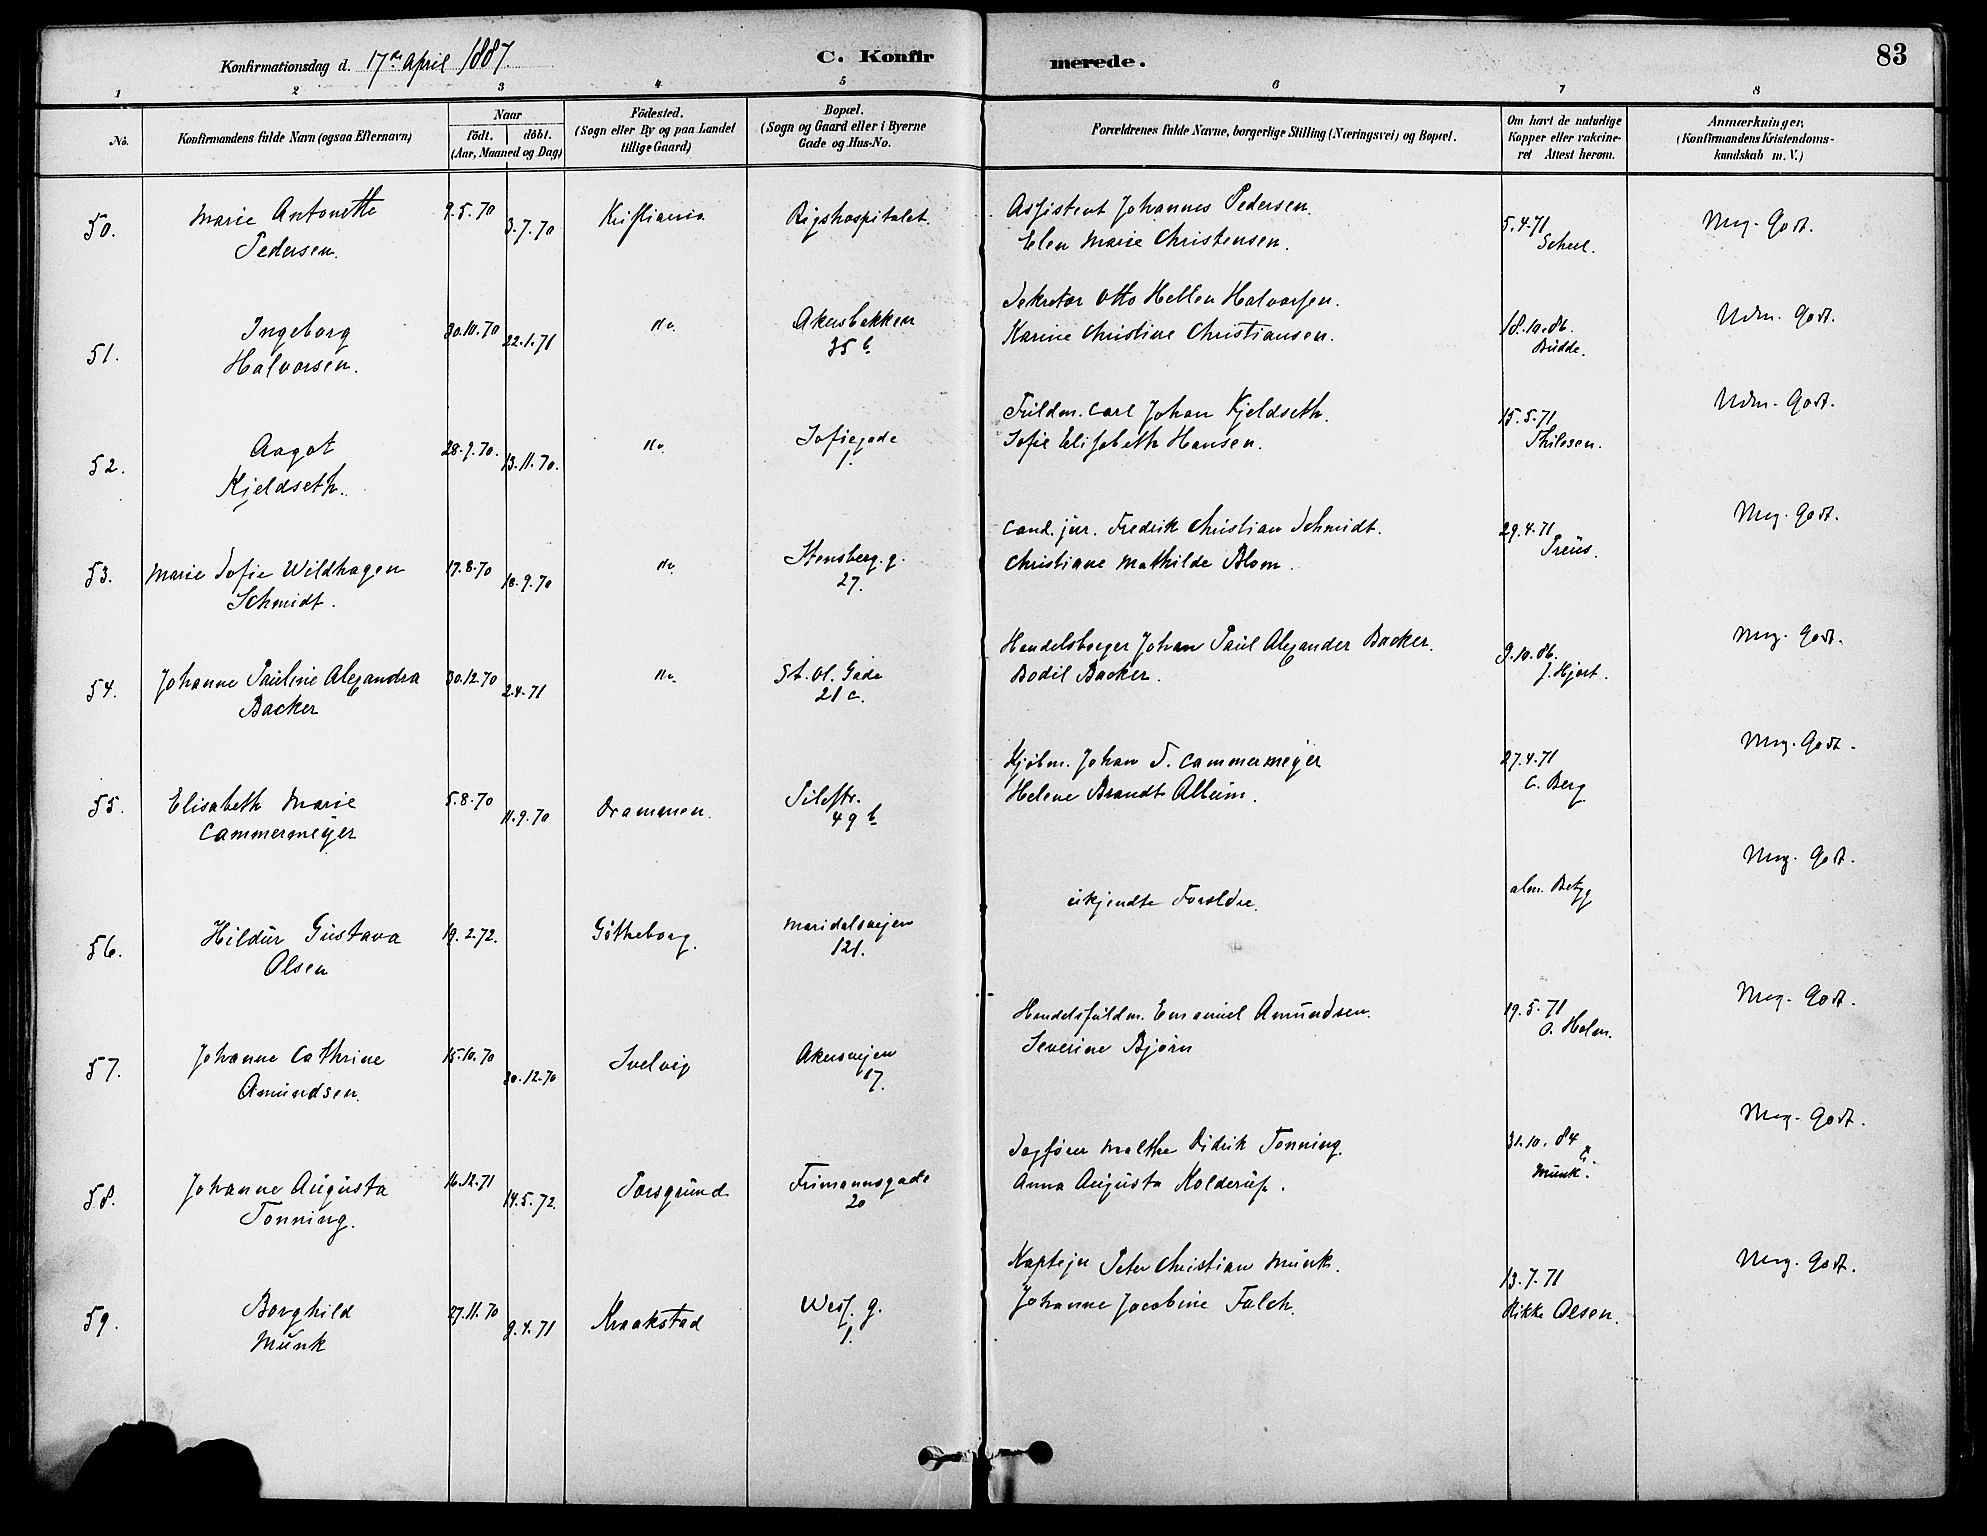 Konfirmationsdag d. 17de April 1887.
C. Konfirmerede.
83
1 2 3 4 5 6 7 8
No.
Konfirmandens fulde Navn (ogsaa Efternavn)
Naar
födt. döbt.
(Aar, Maaned og Dag)
Födested.
(Sogn eller By og paa Landet
tillige Gaard)
Bopæl.
(Sogn og Gaard eller i Byerne
Gade og Hus-No.
Forældrenes fulde Navne, borgerlige Stilling (Næringsvei) og Bopæl.
Om havt de naturlige
Kopper eller vakcine-
ret Attest herom.
Anmærkninger,
(Konfirmandens Kristendoms-
kundskab m. V.)
50. Marie Antonette
Pedersen.
9.5.70
3.7.70
Kristiania
Rigshospitalet.
Assistent Johannes Pedersen.
Elen Marie Christensen.
5.4.71
Scheel.
Meg. Godt.
51. Ingeborg
Halvorsen.
30.10.70
22.1.71
do.
Akersbakken
35 b
Sekretær Otto Hellen Halvorsen.
Karine Christine Christiansen.
18.10.86.
Budde.
Udm. Godt.
52. Aagot
Kjeldseth.
28.9.70.
13.11.70.
do.
Sofiegade
1.
Fuldm. Carl Johan Kjeldseth.
Sofie Elisabeth Hansen.
15.5.71
Thilesen.
Udm. Godt.
53. Marie Sofie Wildhagen
Schmidt.
17.8.70
18.9.70
do.
Stensberg. g.
27.
Cand. jur. Fredrik Christian Schmidt.
Christiane Mathilde Blom.
29.4.71
Preus.
Meg. Godt.
54. Johanne Pauline Alexandra
Backer
30.12.70
2.4.71
do.
St. Ol. Gade
21 c.
Handelsborger Johan Paul Alexander Backer.
Bodil Backer.
9.10.86.
J. Hjort.
Meg. Godt.
55. Elisabeth Marie
Cammermeyer
5.8.70
11.9.70
Drammen.
Pilestr.
49 b
Kjøbm. Johan S. Cammermeyer
Helene Brandt Alteim.
27.4.71
C. Berg
Meg. Godt.
56. Hildur Gustava
Olsen
19.2.72.
Götheborg.
Maridalsveien
121.
ukjendte Forældre.
alm. Betyg
Meg. Godt.
57. Johanne Cathrine
Amundsen.
15.10.70
30.12.70
Svelvig
Akersvejen
17.
Handelsfuldm. Emanuel Amundsen.
Severine Bjørn
19.5.71
O. Holm.
Meg. Godt.
58. Johanne Augusta
Tonning.
16.12.71
14.5.72.
Porsgrund
Frimannsgade
20
Sagfører Malthe Didrik Tonning.
Anna Augusta Kolderup.
31.10.84
Munk.
Meg. Godt.
59. Borghild
Munk
27.11.70
9.4.71
Kraakstad
Wess. g.
1.
Kaptejn Peter Christian Munk.
Johanne Jacobine Falch.
13.7.71
Rikke Olsen.
Meg. Godt.